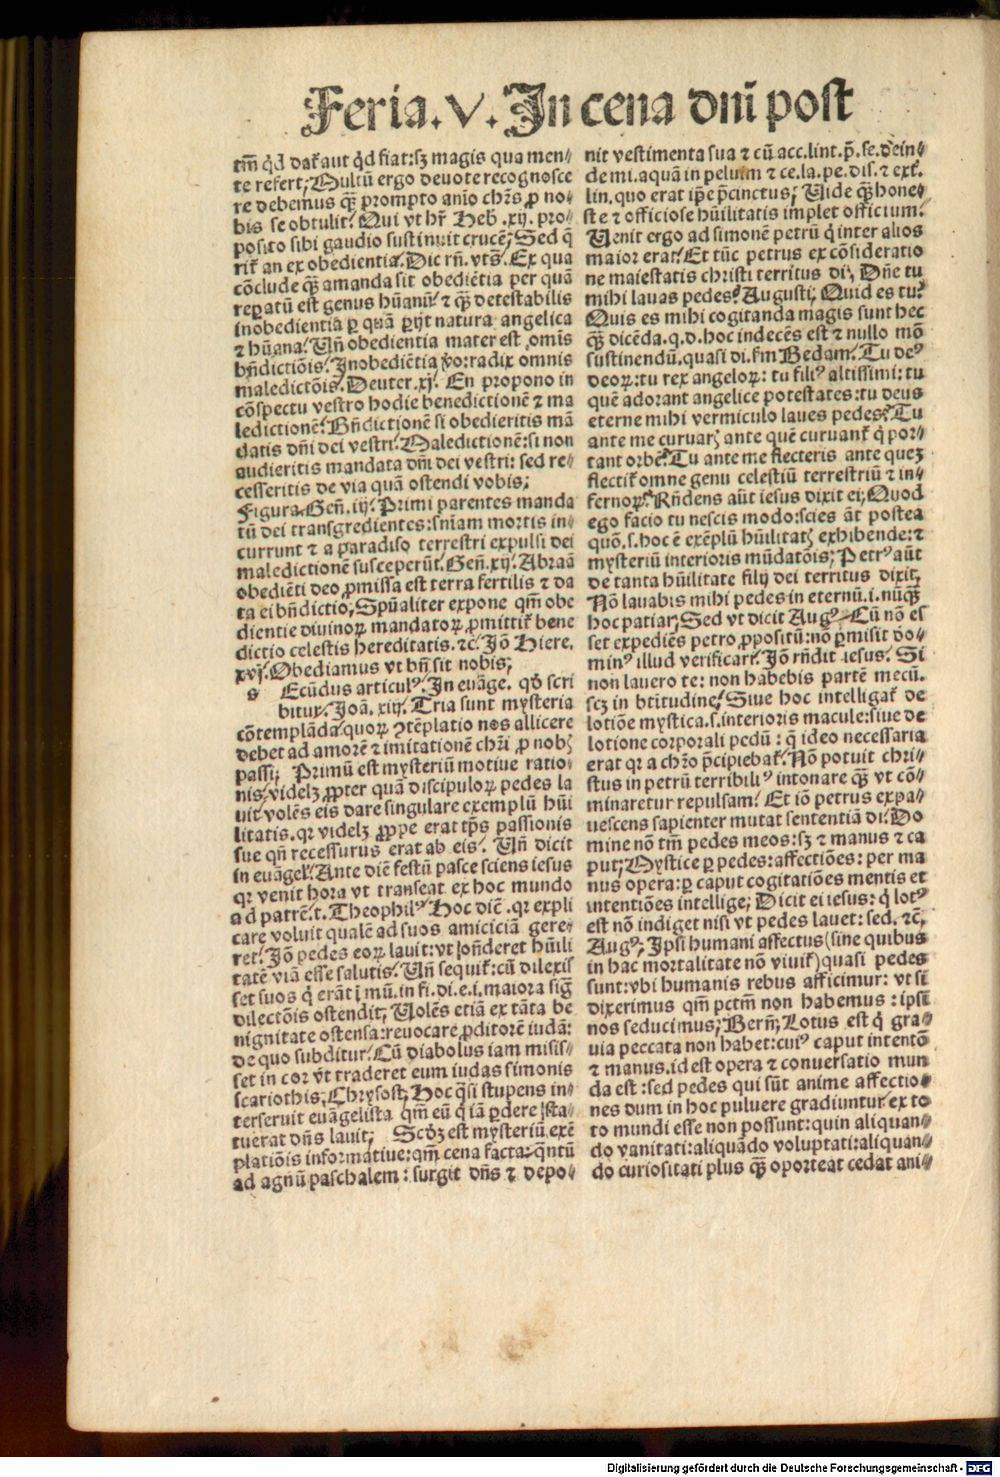 Feria. V. In cena dnĩ post
tm̃ qď daťaut qď fiat:sʒ magis qua men⸗
te refert; Multũ ergo deuote recognosce
re debemus qꝫ prompto anĩo chrs̃ ꝓ no⸗
bis se obtulit. Qui vt hr̃ Heb̃.xij. pro⸗
posito sibi gaudio sustinuit crucẽ; Sed q̃
rit̃ an ex obedientia. Dic rñ. vts̃. Ex qua
cõclude qꝫ amanda sit obediẽtia per quã
reꝑatũ est genus hũanũ. ⁊ qꝫ detestabilis
inobedientia ꝑ quã ꝑijt natura angelica
⁊ hũana. Vñ obedientia mater est omis
bñdictiõis. Inobediẽtia ṽo:radix omnis
maledictõis. Deuter.xj. En propono in
cõspectu vestro hodie benedictionẽ ⁊ ma
ledictionẽ. Bñdictionẽ si obedieritis mã
datis dñi dei vestri. Maledictionẽ:si non
audieritis mandata dñi dei vestri: sed re⸗
cesseritis de via quã ostendi vobis;
Figura.Geñ.iij. Primi parentes manda
tũ dei transgredientes:sniam mortis in⸗
currunt ⁊ a paradiso terrestri expulsi dei
maledictionẽ susceperũt. Geñ.xij. Abraã
obediẽti deo ꝓmissa est terra fertilis ⁊ da
ta ei bñdictio; Spũaliter expone qm̃ obe
dientie diuinoꝝ mandatoꝝ ꝓmittit̃ bene
dictio celestis hereditatis.⁊c. Jõ Hiere.
xvj. Obediamus vt bñ sit nobis;
s Ecũdus articulꝰ. In euãge. qď scri
bitur. Joã. xiij. Tria sunt mysteria
cõtemplãda quoꝝ ꝯtẽplatio nos allicere
debet ad amorẽ ⁊ imitationẽ chri ꝓ nobꝫ
passi; Primũ est mysteriũ motiue ratio⸗
nis/videlʒ ꝓpter quã discipuloꝝ pedes la
uit volẽs eis dare singulare exemplũ hũi
litatis.qꝛ videlʒ ꝓpe erat tp̃s passionis
sue qñ recessurus erat ab eis. Vñ dicit
in euãgel. Ante diẽ festũ pasce sciens iesus
qꝛ venit hora vt transeat ex hoc mundo
ad patrẽ.t. Theophilꝰ Hoc diẽ .qꝛ expli
care voluit qualẽ ad suos amiciciã gere⸗
ret. Jõ pedes eoꝝ lauit:vt oñderet hũili
tatẽ viã esse salutis. Vñ sequit̃:cũ dilexis
set suos q̃ erãt ĩ mũ.in fi.di.e.i.maiora sig̃
dilectõis ostendit; Volẽs etiã ex tãta be
nignitate ostensa:reuocare ꝓditorẽ iudã:
de quo subditur. Cũ diabolus iam misis⸗
set in cor vt traderet eum iudas simonis
scariothis; Chrysost; Hoc q̃si stupens in⸗
terseruit euãgelista qm̃ eũ q̃ iã ꝑdere ista⸗
tuerat dñs lauit; Scďʒ est mysteriũ exẽ
platiõis informatiue:qm̃ cena facta:q̃ntũ
ad agnũ paschalem: surgit dñs ⁊ depo⸗
nit vestimenta sua ⁊ cũ acc.lint.p̃.se.dein⸗
de mi.aquã in peluim ⁊ ce.la.pe.dis.⁊ ext̃.
lin.quo erat ip̃e p̃cinctus; Vide qꝫ hone⸗
ste ⁊ officiose hũilitatis implet officium.
Venit ergo ad simonẽ petrũ q̃ inter alios
maior erat. Et tũc petrus ex cõsideratio
ne maiestatis christi territus di; Dñe tu
mihi lauas pedes? Augusti; Quid es tu?
Quis es mihi cogitanda magis sunt hec
qꝫ dicẽda.q.d.hoc indecẽs est ⁊ nullo mõ
sustinendũ.quasi di.ẜm Bedam. Tu deꝰ
deoꝝ:tu rex angeloꝝ: tu filiꝰ altissimi: tu
quẽ adorant angelice potestates:tu deus
eterne mihi vermiculo laues pedes? Tu
ante me curuarꝫ ante quẽ curuant̃ q̃ por⸗
tant orbẽ? Tu ante me flecteris ante queʒ
flectit̃ omne genu celestiũ terrestriũ ⁊ in⸗
fernoꝝ? Rñdens aũt iesus dixit ei; Quod
ego facio tu nescis modo:scies ãt postea
quõ.s.hoc ẽ exẽplũ hũilitatꝫ exhibende:⁊
mysteriũ interioris mũdatõis; Petrꝰ aũt
de tanta hũilitate filij dei territus dixit;
Nõ lauabis mihi pedes in eternũ.i.nũqꝫ
hoc patiar; Sed vt dicit Augꝰ. Cũ nõ es
set expediẽs petro ꝓpositũ:nõ ꝑmisit do⸗
minꝰ illud verificari. Jõ rñdit iesus. Si
non lauero te: non habebis partẽ mecũ.
scʒ in btĩtudine; Siue hoc intelligat̃ de
lotiõe mystica.s.interioris macule:siue de
lotione corporali pedũ: q̃ ideo necessaria
erat qꝛ a chro p̃cipiebat̃. Nõ potuit chri⸗
stus in petrũ terribiliꝰ intonare qꝫ vt cõ⸗
minaretur repulsam. Et iõ petrus expa⸗
uescens sapienter mutat sententiã di. Do
mine nõ tm̃ pedes meos:sʒ ⁊ manus ⁊ ca
put; Mystice ꝑ pedes:affectiões: per ma
nus opera:ꝑ caput cogitatiões mentis et
intentiões intellige; Dicit ei iesus: q̃ lotꝰ
est nõ indiget nisi vt pedes lauet: sed. ⁊c̃.
Augꝰ; Ipsi humani affectus (sine quibus
in hac mortalitate nõ viuit̃) quasi pedes
sunt:vbi humanis rebus afficimur: vt si
dixerimus qm̃ pctm̃ non habemus: ipsi
nos seducimus; Berñ; Lotus est q̃ gra⸗
uia peccata non habet:cuiꝰ caput intentõ
⁊ manus.id est opera ⁊ conuersatio mun
da est: sed pedes qui sũt anime affectio⸗
nes dum in hoc puluere gradiuntur ex to
to mundi esse non possunt:quin aliquan⸗
do vanitati:aliquãdo voluptati:aliquan⸗
do curiositati plus qꝫ oporteat cedat ani⸗
Digitalisierung gefördert durch die Deutsche Forschungsgemeinschaft - DFG